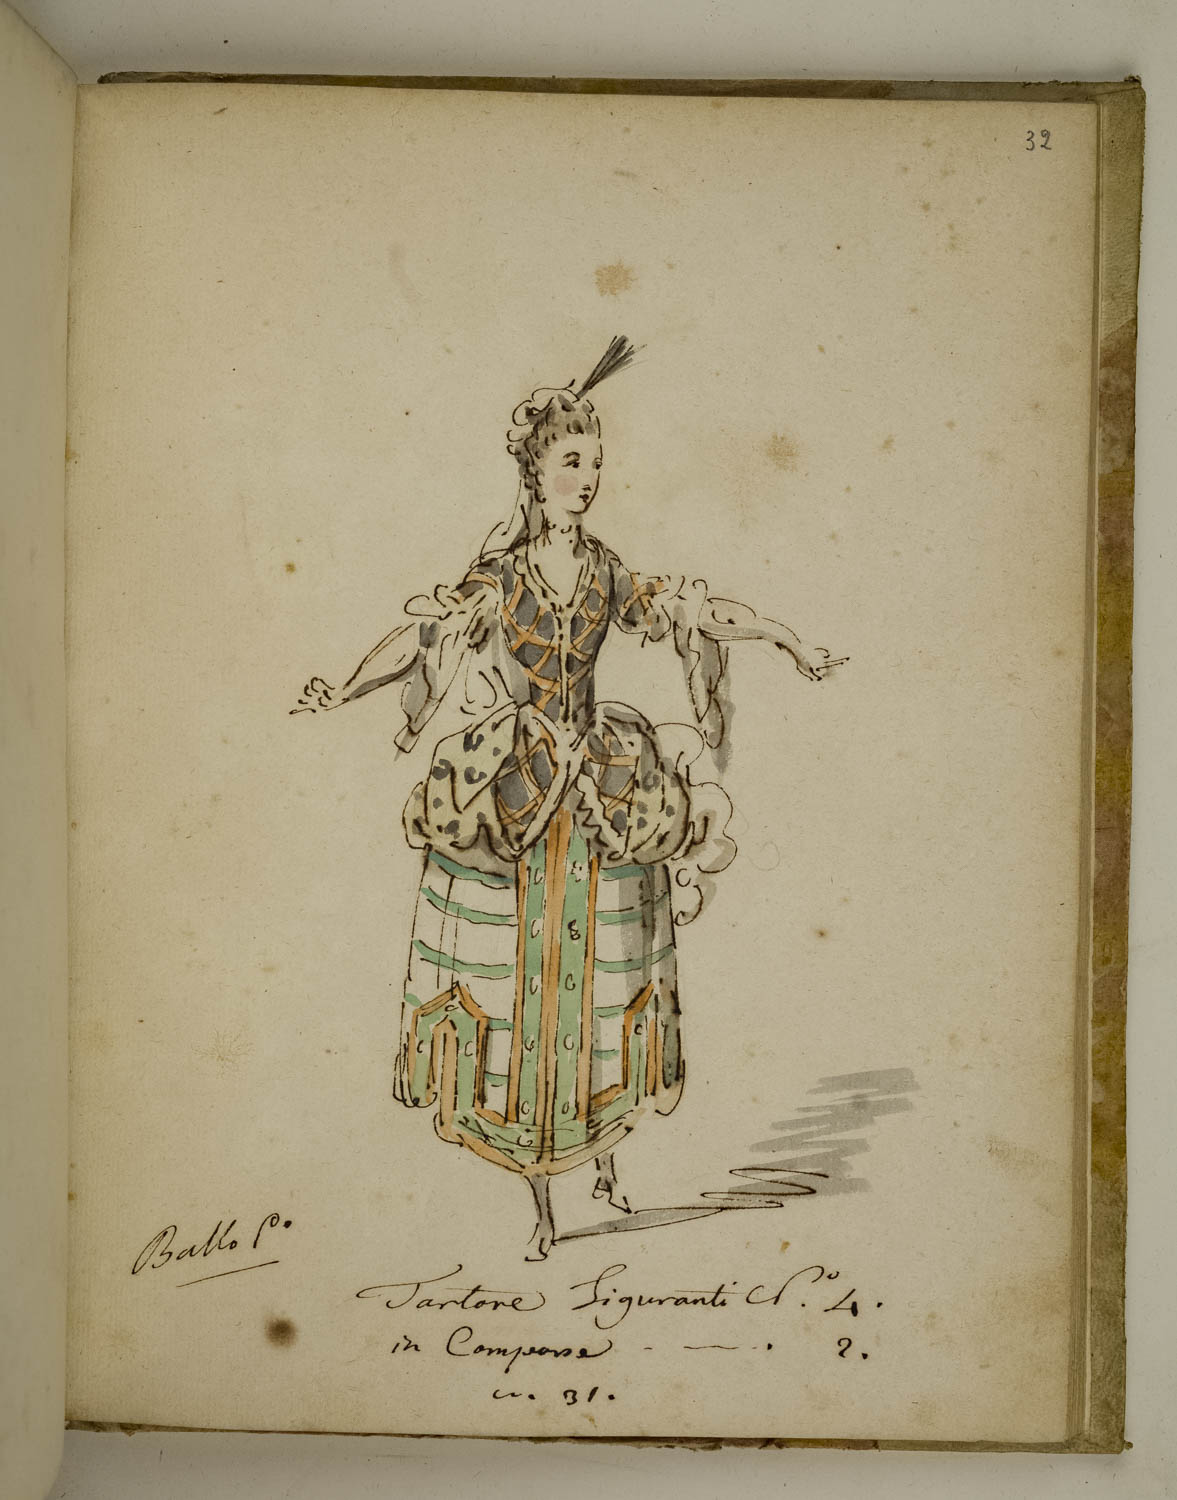 32
Ballo P.º
Tartare Figuranti N.º 4.
in Comparse - — . 2.
n. 31.